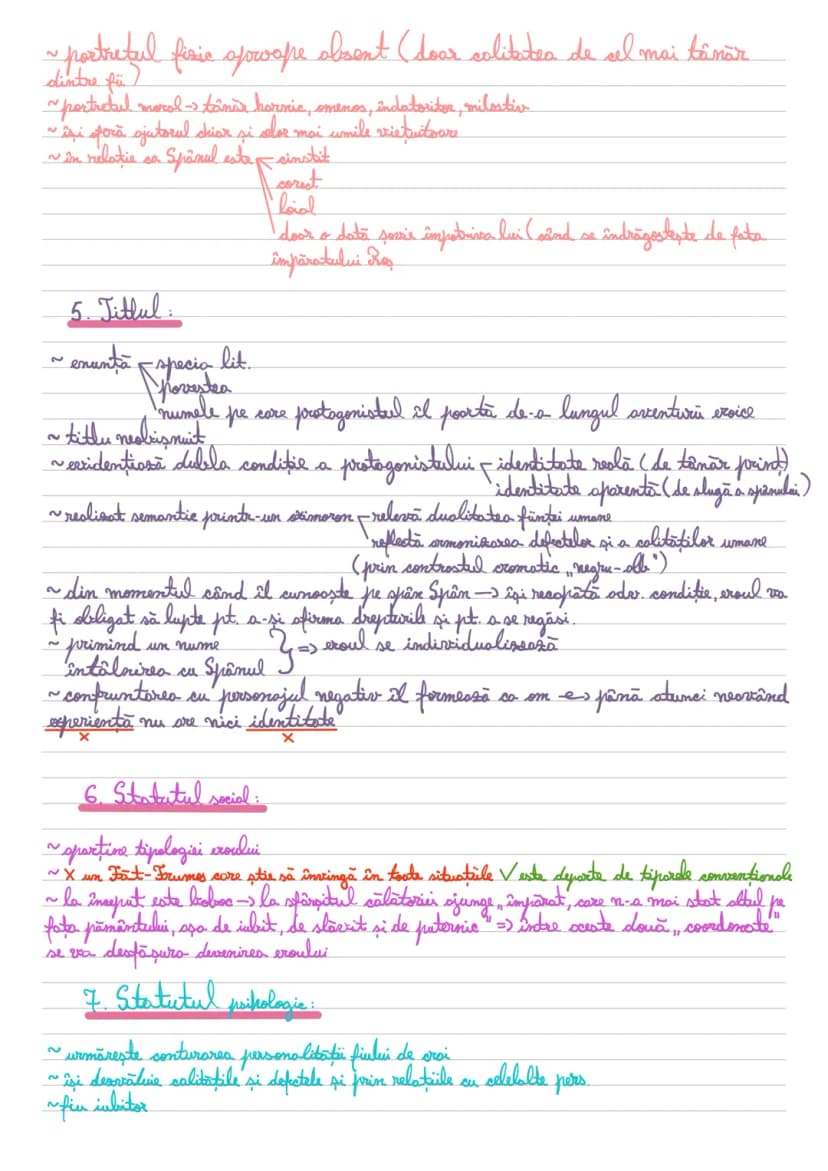 ~ portretul fizic aproape absent (doar calitatea de cel mai tânăr
dintre fii)
~ portretul moral -> tânăr harnic, omenos, îndatoritor, milostiv
~ își oferă ajutorul chiar și celor mai umile viețuitoare
~ în relație cu Spânul este cinstit
corect
loial
doar o dată șovăie împotriva lui (când se îndrăgostește de fata
împăratului Roș
5. Titlul:
~ enunță specia lit.
povestea
numele pe care protagonistul îl poartă de-a lungul aventurii eroice
~ titlu neobișnuit
~ evidențiază dubla condiție a protagonistului identitate reală (de tânăr prinț)
identitate aparentă (de slugă a spânului)
~ realizat semantic printr-un oximoron relevă dualitatea ființei umane
reflectă armonizarea defectelor și a calităților umane
(prin contrastul cromatic „negru-alb")
~ din momentul când îl cunoaște pe spân Spân -> își reapătă adev. condiție, eroul va
fi obligat să lupte pt. a-și afirma drepturile și pt. a se regăsi.
~ primind un nume } => eroul se individualizează
întâlnirea cu Spânul
~ confruntarea cu personajul negativ îl formează ca om <-> până atunci neavând
experiență nu are nici identitate
x x
6. Statutul social:
~ aparține tipologiei eroului
~ X un Făt-Frumos care știe să învingă în toate situațiile V este departe de tiparele convenționale
~ la început este boboc -> la sfârșitul călătoriei ajunge „împărat, care n-a mai stat altul pe
fața pământului, așa de iubit, de slăvit și de puternic" => între aceste două „coordonate"
se va desfășura devenirea eroului
7. Statutul psihologic:
~ urmărește conturarea personalității fiului de crai
~ își dezvăluie calitățile și defectele și prin relațiile cu celelalte pers.
~ fiu iubitor